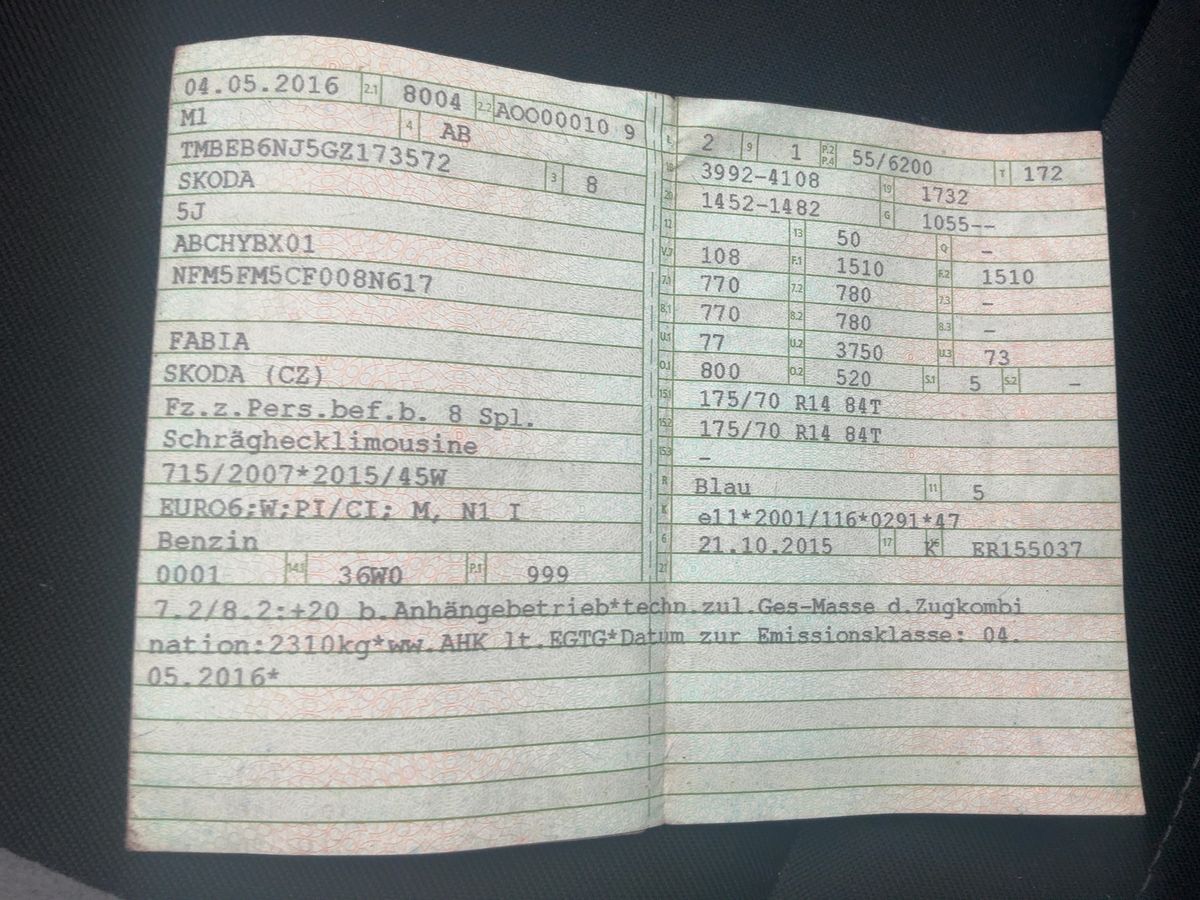 04.05.2016 2.1 8004 2.2 AOO00010 9
M1 4 AB
TMBEB6NJ5GZ173572 3 8
SKODA
5J
ABCHYBX01
NFM5FM5CF008N617
FABIA
SKODA (CZ)
Fz.z.Pers.bef.b. 8 Spl.
Schräghecklimousine
715/2007*2015/45W
EURO6;W;PI/CI; M, N1 I
Benzin
0001 14.1 36W0 P.1 999
L 2 9 1 P.2 P.4 55/6200 T 172
18 3992-4108 19 1732
20 1452-1482 G 1055--
12 13 50 Q -
V.7 108 F.1 1510 F.2 1510
7.1 770 7.2 780 7.3 -
8.1 770 8.2 780 8.3 -
U.1 77 U.2 3750 U.3 73
O.1 800 O.2 520 S.1 5 S.2 -
15.1 175/70 R14 84T
15.2 175/70 R14 84T
15.3 -
R Blau 11 5
K e11*2001/116*0291*47
6 21.10.2015 17 K 16 ER155037
21
7.2/8.2:+20 b.Anhängebetrieb*techn.zul.Ges-Masse d.Zugkombi
nation:2310kg*ww.AHK lt.EGTG*Datum zur Emissionsklasse: 04.
05.2016*